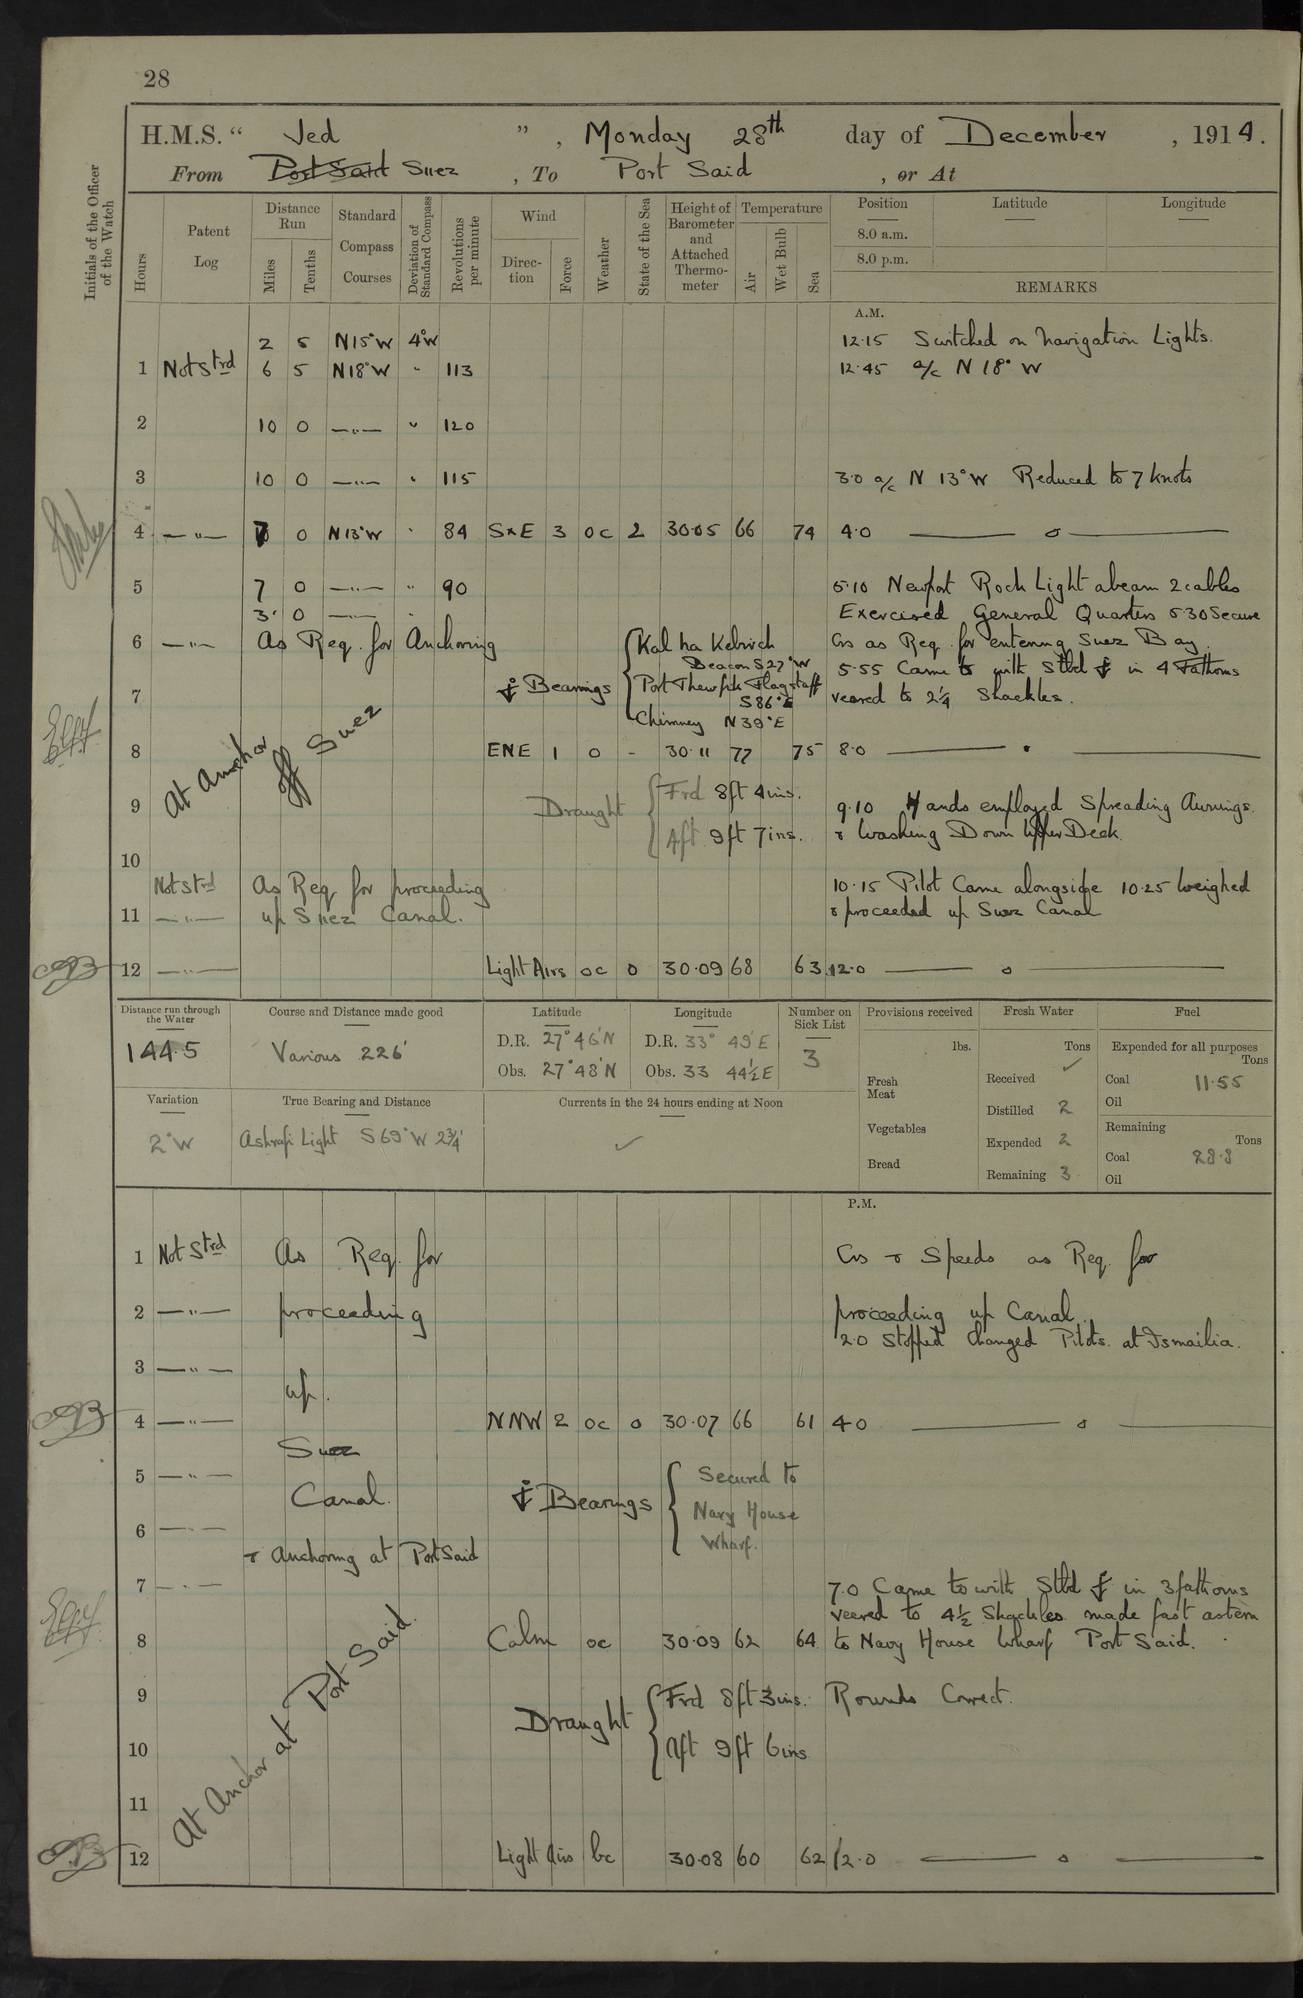 28
H.M.S. " Jed ", Monday 28th day of December, 1914.
From Port Said Suez, To Port Said, or At
Initials of the Officer of the Watch
Hours
Patent Log
Distance Run
Miles
Tenths
Standard Compass Courses
Deviation of Standard Compass
Revolutions per minute
Wind
Direc-tion
Force
Weather
State of the Sea
Height of Barometer and Attached Thermo-meter
Temperature
Air
Wet Bulb
Sea
Position
8.0 a.m.
8.0 p.m.
Latitude
Longitude
REMARKS
A.M.
2 5 N15°W 4°W 12.15 Switched on Navigation Lights.
1 Not Strd 6 5 N18°W " 113 12.45 a/c N 18° W
2 10 0 —"— " 120
3 10 0 —"— " 115 3.0 a/c N 13°W Reduced to 7 knots
4 —"— 7 0 N13°W " 84 SxE 3 oc 2 30.05 66 74 4.0 —— o ——
5 7 0 —"— " 90 5.10 Newport Rock Light abeam 2 cables
3. 0 —"— " Exercised General Quarters 5.30 Secure
6 —"— As Req. for Anchoring Kal ha Kebrich Cos as Req. for entering Suez Bay.
Beacon S27°W 5.55 Came to with Stbd ⚓ in 4 Fathoms
7 ⚓ Bearings Port Thewfik Flagstaff veered to 2¼ Shackles.
S86°E
Chimney N39°E
At Anchor off Suez
8 ENE 1 o - 30.11 77 75 8.0 —— . ——
9 Draught Frd 8ft 4ins. 9.10 Hands employed Spreading Awnings.
Aft 9ft 7ins. & Washing Down Upper Deck.
10
Not Strd As Req for proceeding 10.15 Pilot Came alongside 10.25 Weighed
11 —"— up Suez Canal. & proceeded up Suez Canal
12 —"— Light Airs oc o 30.09 68 63 12.0 —— o ——
Distance run through the Water
144.5
Course and Distance made good
Various 226'
Latitude
D.R. 27° 46'N
Obs. 27° 48'N
Longitude
D.R. 33° 49'E
Obs. 33 44½E
Number on Sick List
3
Provisions received
lbs.
Fresh Meat
Vegetables
Bread
Fresh Water
Tons
Received ✓
Distilled 2
Expended 2
Remaining 3
Fuel
Expended for all purposes
Tons
Coal 11.55
Oil
Remaining
Tons
Coal 28.8
Oil
Variation
2°W
True Bearing and Distance
Ashrafi Light S69°W 2¾'
Currents in the 24 hours ending at Noon
✓
P.M.
1 Not Strd As Req. for Cos & Speeds as Req. for
2 —"— proceeding proceeding up Canal.
2.0 Stopped Changed Pilots at Ismailia.
3 —"—
up.
4 —"— NNW 2 oc o 30.07 66 61 4.0 —— o ——
Suez
5 —"— Secured to
Canal. ⚓ Bearings Navy House
6 —"— Wharf.
& Anchoring at Port Said
7 —"— 7.0 Came to with Stbd ⚓ in 3 fathoms
veered to 4½ Shackles made fast astern
8 Calm oc 30.09 62 64 to Navy House Wharf Port Said.
At Anchor at Port Said.
9 Draught Frd 8ft 3ins. Rounds Correct.
10 Aft 9ft 6ins
11
12 Light Airs bc 30.08 60 62 12.0 —— o ——